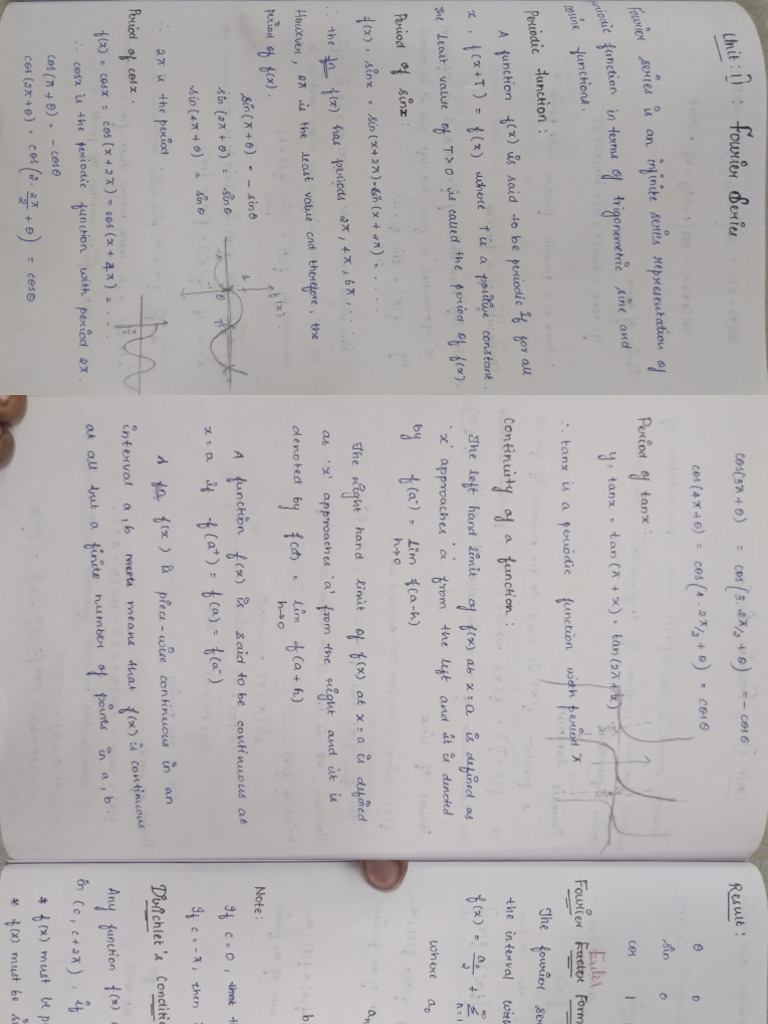 Unit: 1) : Fourier Series
Fourier series is an infinite series representation of
periodic function in terms of trigonometric sine and
cosine functions.
Periodic function :
A function f(x) is said to be periodic if for all
x, f(x+T) = f(x) where T is a positive constant.
The least value of T>0 is called the period of f(x).
Period of sinx :
f(x) = sinx = sin(x+2π) = sin(x+4π) = .....
∴ the f(x) has periods 2π, 4π, 6π, ....
However, 2π is the least value and therefore, the
period of f(x).
sin(π+θ) = - sinθ
sin(2π+θ) = sinθ
sin(4π+θ) = sinθ
∴ 2π is the period.
Period of cosx.
f(x) = cosx = cos(x+2π) = cos(x+4π) = ...
∴ cosx is the periodic function with period 2π.
cos(π+θ) = - cosθ
cos(2π+θ) = cos(2. 2π/2 + θ) = cosθ
cos(3π+θ) = cos(3. 2π/2 + θ) = - cosθ
cos(4π+θ) = cos(4. 2π/2 + θ) = cosθ
Period of tanx :
y = tanx = tan(π+x) = tan(2π+x)
∴ tanx is a periodic function with period π.
Continuity of a function :
The left hand limit of f(x) at x=a is defined as
'x' approaches 'a' from the left and it is denoted
by f(a⁻) = lim f(a-h)
h→0
The right hand limit of f(x) at x=a is defined
as 'x' approaches 'a' from the right and it is
denoted by f(a⁺) = lim f(a+h)
h→0
A function f(x) is said to be continuous at
x=a if f(a⁺) = f(a) = f(a⁻)
A f(x) is piece-wise continuous in an
interval a,b means that f(x) is continuous
at all but a finite number of points in a,b.
Result :
θ 0
sin 0
cos 1
Euler
Fourier Form
The fourier ser
the interval with
f(x) = a₀/2 + Σ
n=1
where a₀
aₙ
b
Note:
If c=0, that
If c=-π, then
Dirichlet's Conditio
Any function f(x)
in (c, c+2π), if
* f(x) must be p
* f(x) must be si